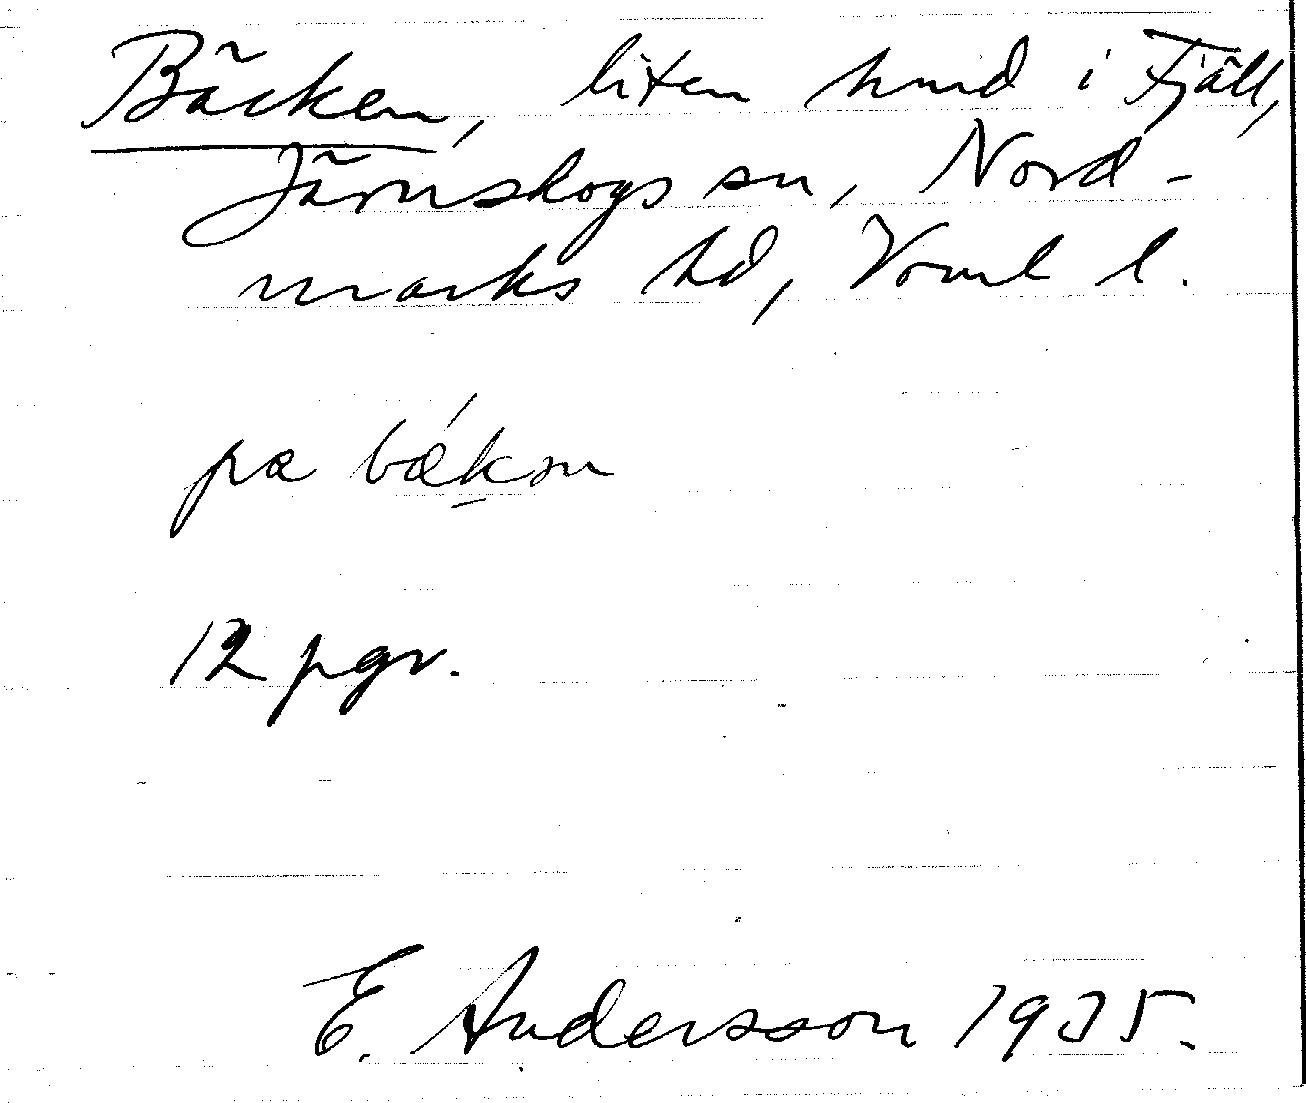 Bäcken, liten hmd i Fjäll,
Järnskogs sn, Nord-
marks hd, Vrml l.
pa bǽkən
12 pgr.
E. Andersson 1935.